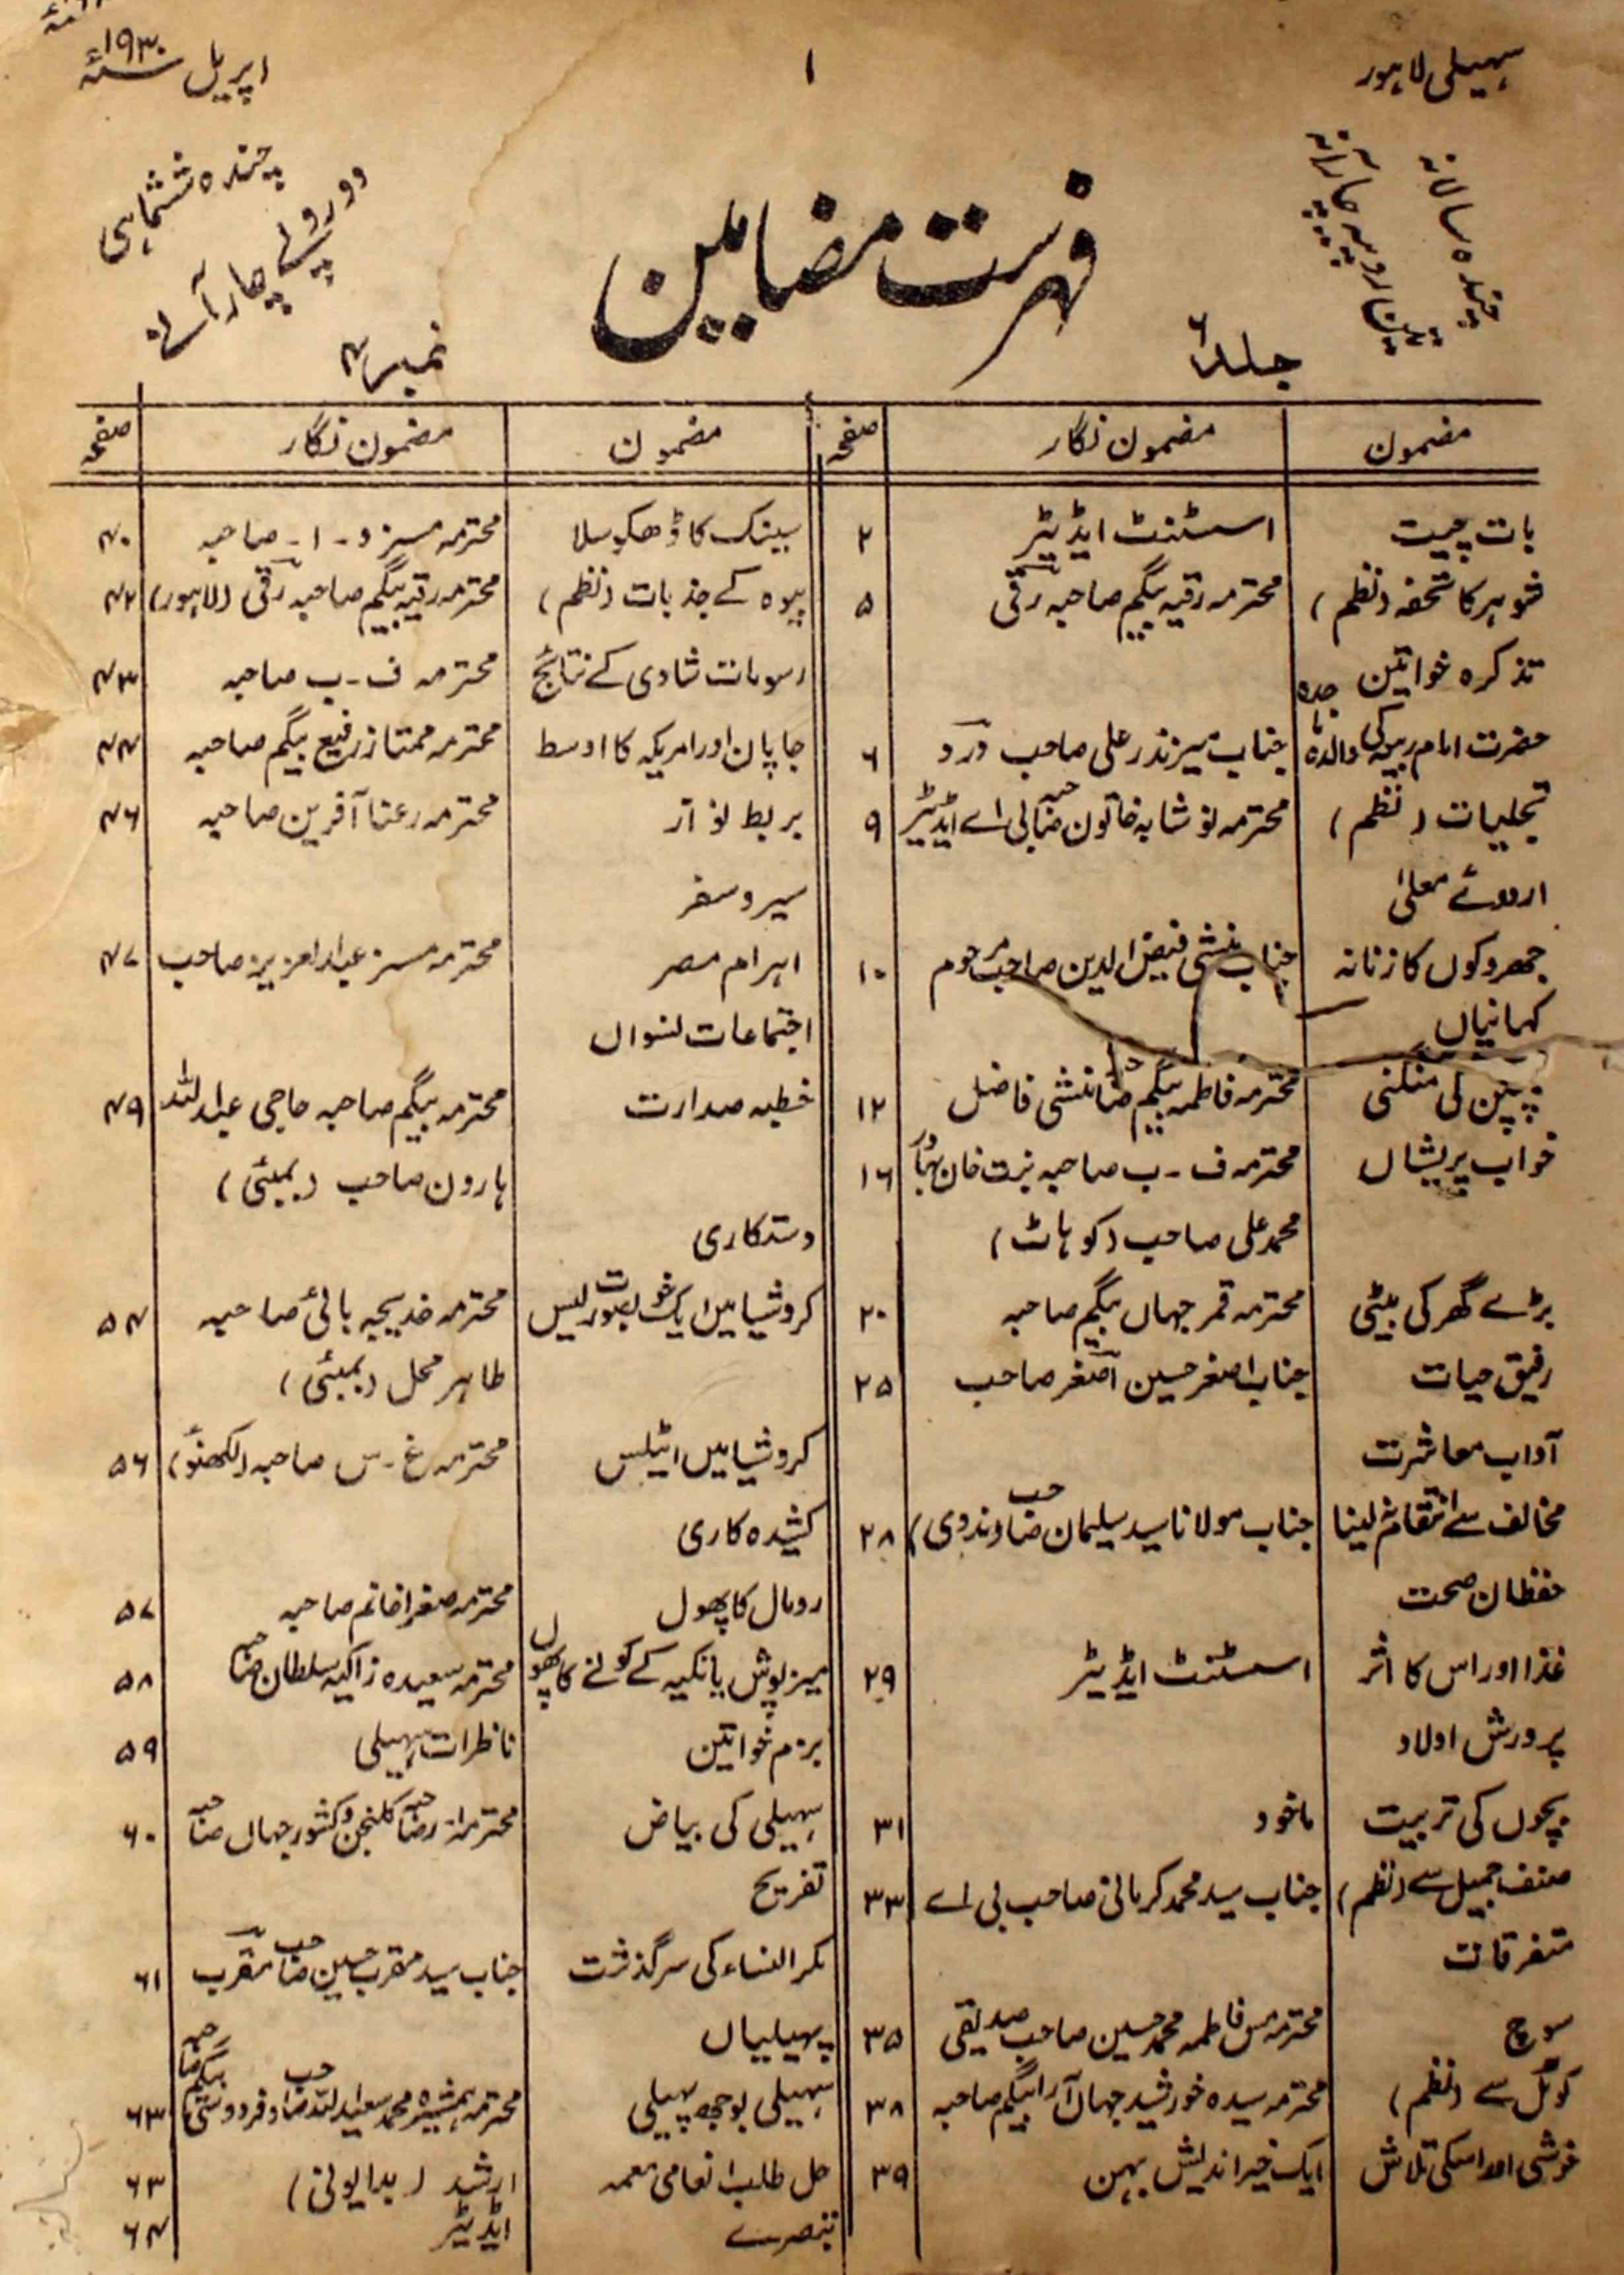 سہیلی لاہور
۱
اپریل ۱۹۳۰ء
چندہ سالانہ
چار آنہ
چندہ ششماہی
دو روپے چار آنے
فہرست مضامین
جلد ۶
نمبر ۴
مضمون مضمون نگار صفحہ
بات چیت اسسٹنٹ ایڈیٹر ۲
شوہر کا تحفہ (نظم) محترمہ رقیہ بیگم صاحبہ رقی ۵
تذکرہ خواتین
حضرت امام ربیعہ کی والدہ ماجدہ جناب میر نذر علی صاحب درد ۶
تجلیات (نظم) محترمہ نوشابہ خاتون صاحبہ بی اے ایڈیٹر ۹
اردوئے معلیٰ
جھروکوں کا زنانہ جناب منشی فیض الدین صاحب مرحوم ۱۰
کہانیاں
پپن کی منگنی محترمہ فاطمہ بیگم صاحبہ منشی فاضل ۱۲
خواب پریشاں محترمہ ف۔ ب صاحبہ بنت خان بہادر ۱۶
محمد علی صاحب (کوہاٹ)
بڑے گھر کی بیٹی محترمہ قمر جہاں بیگم صاحبہ ۲۰
رفیق حیات جناب اصغر حسین اصغر صاحب ۲۵
آداب معاشرت
مخالف سے انتقام لینا جناب مولانا سید سلیمان صاحب (ندوی) ۲۸
حفظان صحت
غذا اور اس کا اثر اسسٹنٹ ایڈیٹر ۲۹
پرورش اولاد
بچوں کی تربیت ماخوذ ۳۱
صنف جمیل سے (نظم) جناب سید محمد کرمانی صاحب بی اے ۳۳
متفرقات
سوچ محترمہ مس فاطمہ محمد حسین صاحب صدیقی ۳۵
کوئل سے (نظم) محترمہ سیدہ خورشید جہاں آرا بیگم صاحبہ ۳۸
خوشی اور اسکی تلاش ایک خیر اندیش بہن ۳۹
مضمون مضمون نگار صفحہ
سپنک کا ڈھکوسلا محترمہ مسز و۔ ا۔ صاحبہ ۴۰
بیوہ کے جذبات (نظم) محترمہ رقیہ بیگم صاحبہ رقی (لاہور) ۴۲
رسومات شادی کے نتائج محترمہ ف۔ ب صاحبہ ۴۳
جاپان اور امریکہ کا اوسط محترمہ ممتاز رفیع بیگم صاحبہ ۴۴
بربط نواز محترمہ رعنا آفرین صاحبہ ۴۶
سیر و سفر
اہرام مصر محترمہ مسز عبدالعزیز صاحب ۴۷
اجتماعات نسواں
خطبہ صدارت محترمہ بیگم صاحبہ حاجی عبداللہ ۴۹
ہارون صاحب (بمبئی)
دستکاری
کروشیا میں ایک خوبصورت لیس محترمہ خدیجہ بائی صاحبہ ۵۴
طاہر محل (بمبئی)
کروشیا میں اٹیلس محترمہ غ۔ س صاحبہ (لکھنؤ) ۵۶
کشیدہ کاری
رومال کا پھول محترمہ صغرا خانم صاحبہ ۵۷
میز پوش یا تکیہ کے کونے کا پھول محترمہ سعیدہ زاکیہ سلطان صاحبہ ۵۸
بزم خواتین ناظرات سہیلی ۵۹
سہیلی کی بیاض محترمہ از رضا صاحبہ کلنجن و کشور جہاں صاحبہ ۶۰
تفریح
مکر النساء کی سرگذشت جناب سید مقرب حسین صاحب مقرب ۶۱
پہیلیاں
سہیلی بوجھ پہیلی محترمہ ہمشیرہ محمد سعیداللہ صاحب و فردوسی بیگم صاحبہ ۶۳
حل طلب انعامی معمہ ارشد (بدایونی) ۶۳
تبصرے ایڈیٹر ۶۴